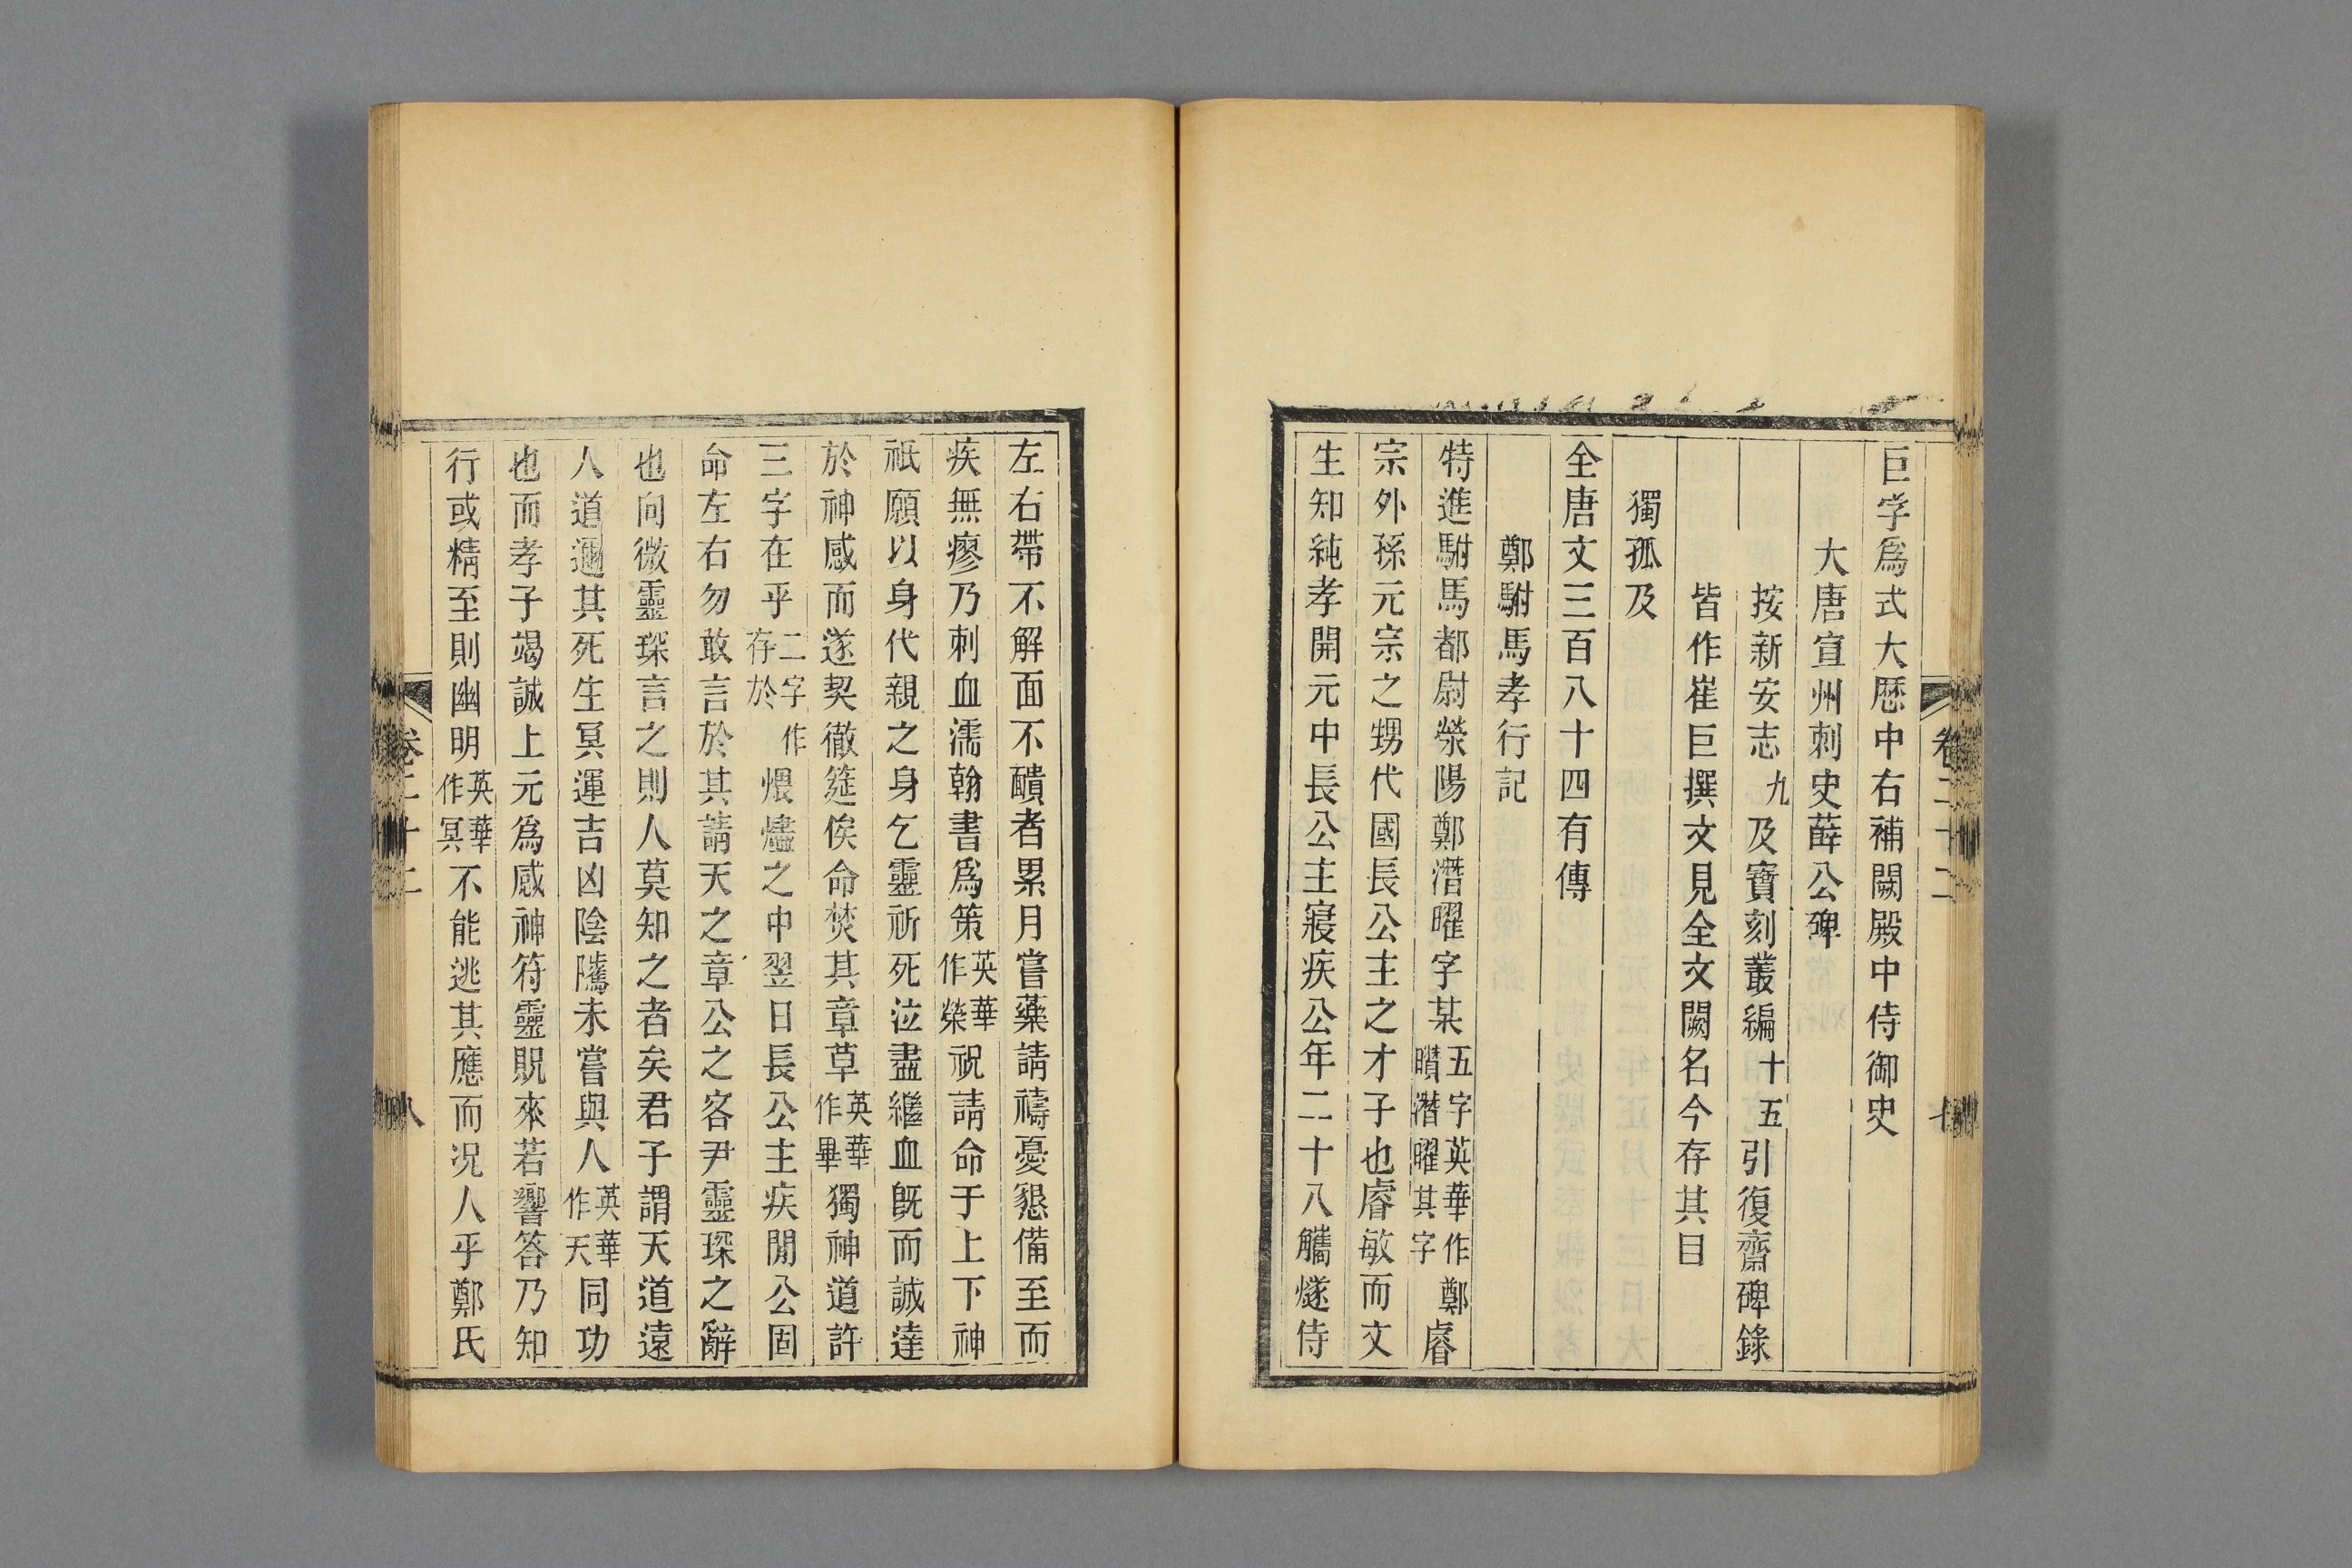 巨字爲式大厯中右補闕殿中侍御史
大唐宣州刺史薛公碑
按新安志九及寶刻叢編十五引復齋碑錄
皆作崔巨撰文見全文闕名今存其目
獨孤及
全唐文三百八十四有傳
鄭駙馬孝行記
特進駙馬都尉榮陽鄭潛曜字某五字英華作鄭㬤潛曜其字睿
宗外孫元宗之甥代國長公主之才子也睿敏而文
生知純孝開元中長公主寢疾公年二十八觿燧侍
左右帶不解面不靧者累月嘗藥請禱憂懇備至而
疾無瘳乃刺血濡翰書爲策英華作榮祝請命于上下神
祇願以身代親之身乞靈祈死泣盡繼血既而誠達
於神感而遂契徹筵俟命焚其章草英華作畢獨神道許
三字在乎二字作存於煨燼之中翌日長公主疾閒公固
命左右勿敢言於其請天之章公之客尹靈琛之辭
也向微靈琛言之則人莫知之者矣君子謂天道遠
人道邇其死生冥運吉凶陰騭未嘗與人英華作天同功
也而孝子竭誠上元爲感神符靈貺來若響答乃知
行或精至則幽明英華作冥不能逃其應而况人乎鄭氏
卷二十二
七
卷二十二
八